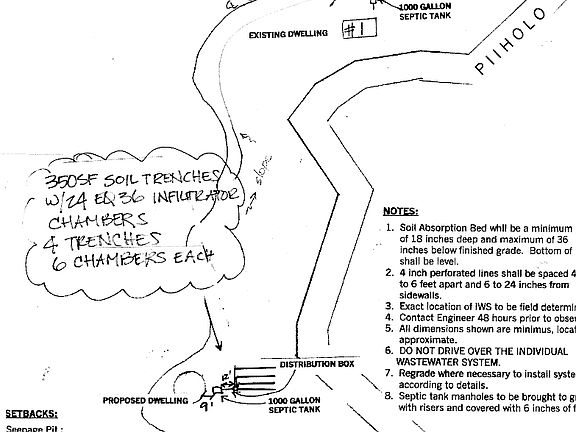 1000 GALLON
SEPTIC TANK
EXISTING DWELLING
#1
PIIHOLO
slope
350SF SOIL TRENCHES
W/24 EQ 36 INFILTRATOR
CHAMBERS
4 TRENCHES
6 CHAMBERS EACH
NOTES:
1. Soil Absorption Bed whll be a minimum
of 18 inches deep and maximum of 36
inches below finished grade. Bottom of
shall be level.
2. 4 inch perforated lines shall be spaced 4
to 6 feet apart and 6 to 24 inches from
sidewalls.
3. Exact location of IWS to be field determi
4. Contact Engineer 48 hours prior to obse
5. All dimensions shown are minimus, locat
approximate.
6. DO NOT DRIVE OVER THE INDIVIDUAL
WASTEWATER SYSTEM.
7. Regrade where necessary to install syste
according to details.
8. Septic tank manholes to be brought to gr
with risers and covered with 6 inches of f
DISTRIBUTION BOX
12'
PROPOSED DWELLING
9'
1000 GALLON
SEPTIC TANK
SETBACKS:
Seepage Pit :